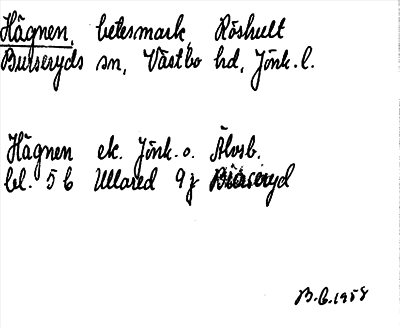 Hägnen, betesmark, Röshult
Burseryds sn, Västbo hd, Jönk. l.
Hägnen ek. Jönk. o. Älvsb.
bl. 5 b Ullared 9 j Burseryd
B.C. 1958